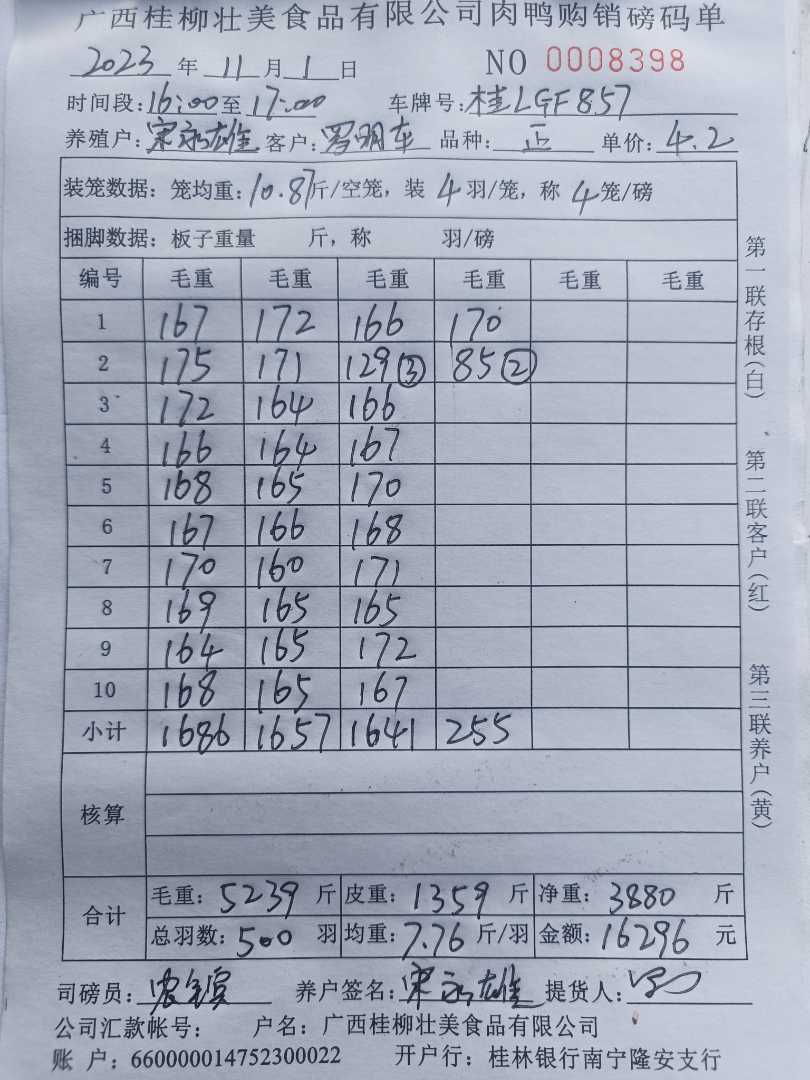 广西桂柳壮美食品有限公司肉鸭购销磅码单
2023 年 11 月 1 日 NO 0008398
时间段: 16:00 至 17:00 车牌号: 桂LGF857
养殖户: 宋永雄 客户: 罗明车 品种: 正 单价: 4.2
装笼数据: 笼均重: 10.87 斤/空笼, 装 4 羽/笼, 称 4 笼/磅
捆脚数据: 板子重量 斤, 称 羽/磅
编号 毛重 毛重 毛重 毛重 毛重 毛重
1 167 172 166 170
2 175 171 129③ 85②
3 172 164 166
4 166 164 167
5 168 165 170
6 167 166 168
7 170 160 171
8 169 165 165
9 164 165 172
10 168 165 167
小计 1686 1657 1641 255
核算
合计 毛重: 5239 斤 皮重: 1359 斤 净重: 3880 斤
总羽数: 500 羽 均重: 7.76 斤/羽 金额: 16296 元
司磅员: 养户签名: 宋永雄 提货人:
公司汇款帐号: 户名: 广西桂柳壮美食品有限公司
账 户: 660000014752300022 开户行: 桂林银行南宁隆安支行
第一联存根(白)
第二联客户(红)
第三联养户(黄)